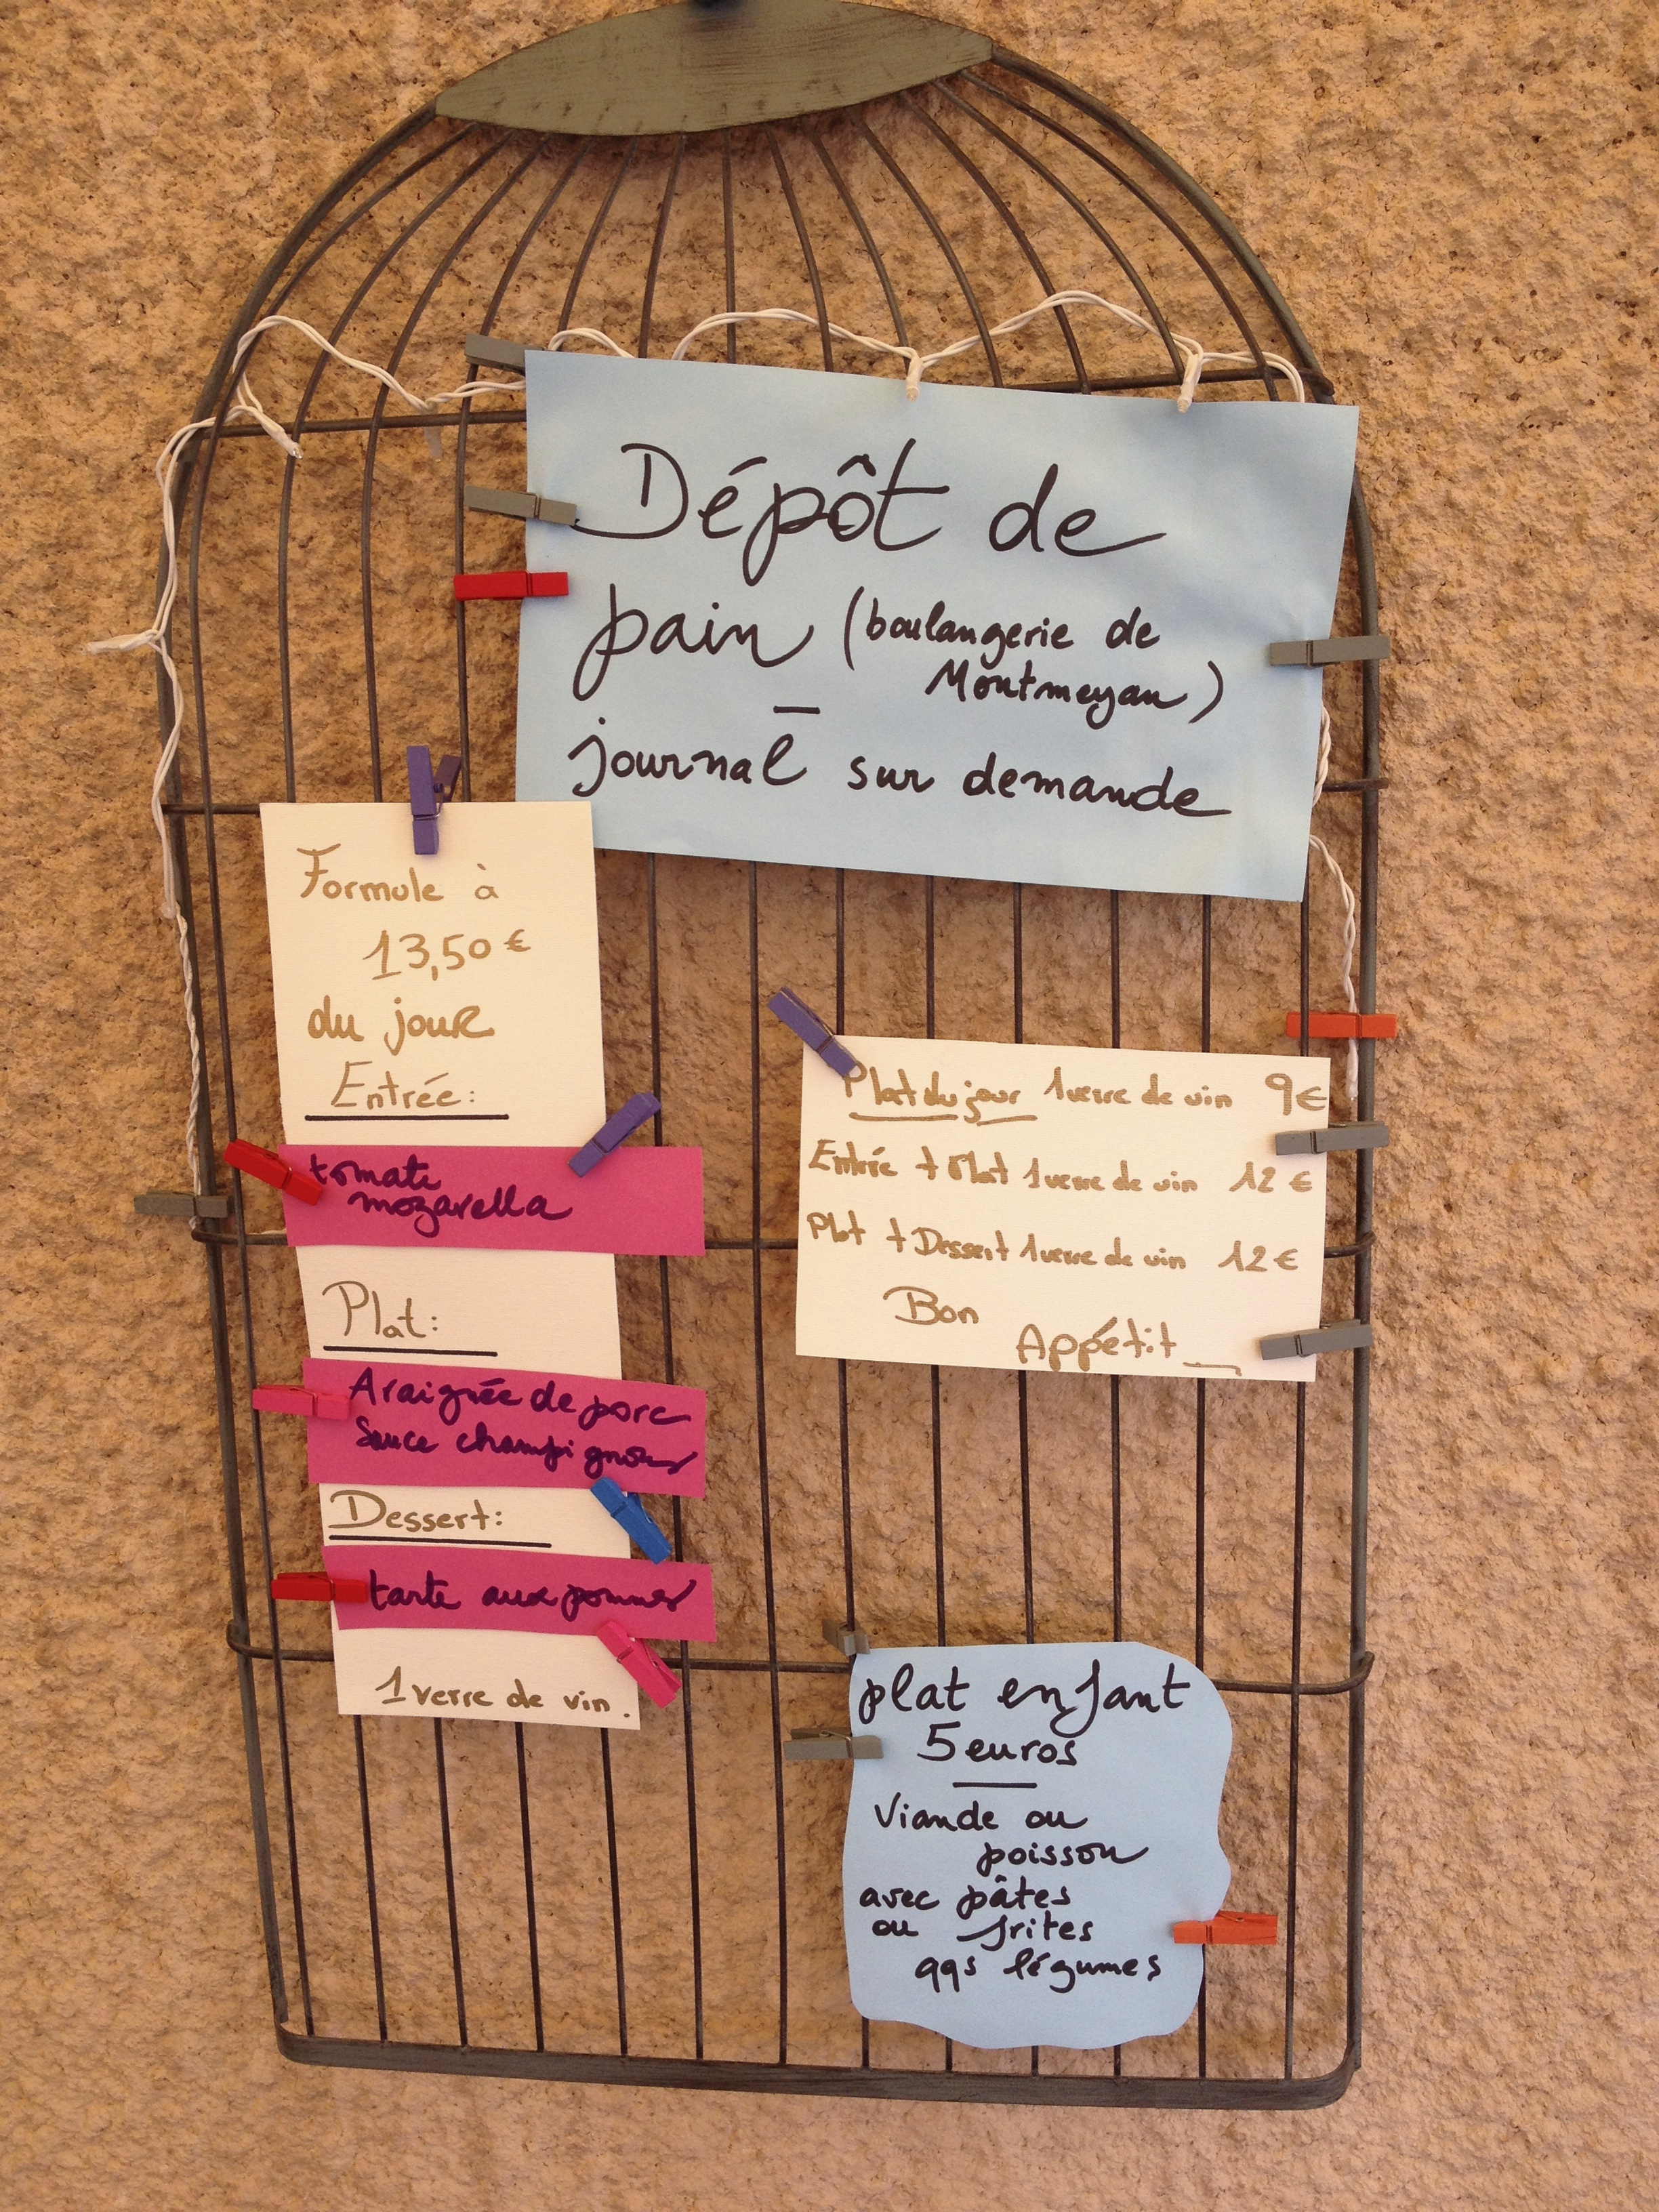 Dépôt de
pain (boulangerie de
Montmeyan)
—
journal sur demande
Formule à
13,50 €
du jour
Entrée:
tomate
mozarella
Plat:
Araignée de porc
Sauce champignons
Dessert:
tarte aux pommes
1 verre de vin.
Plat du jour 1 verre de vin 9€
Entrée + Plat 1 verre de vin 12 €
Plat + Dessert 1 verre de vin 12 €
Bon
Appétit
plat enfant
5 euros
Viande ou
poisson
avec pâtes
ou frites
qqs légumes